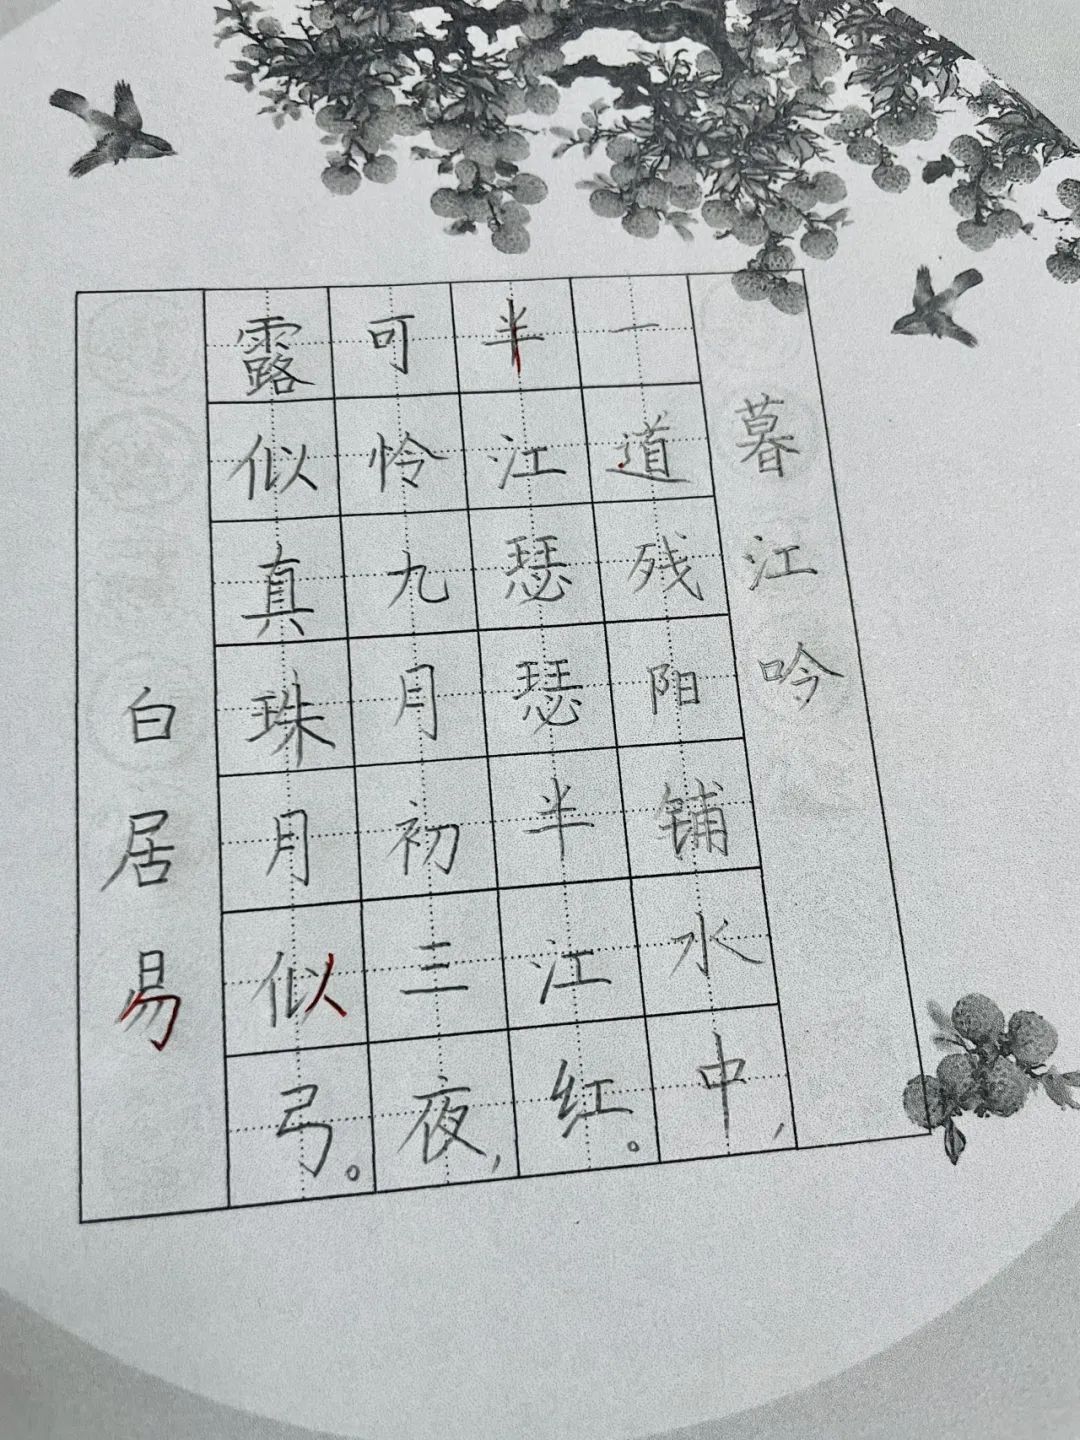 暮江吟
一道残阳铺水中，
半江瑟瑟半江红。
可怜九月初三夜，
露似真珠月似弓。
白居易